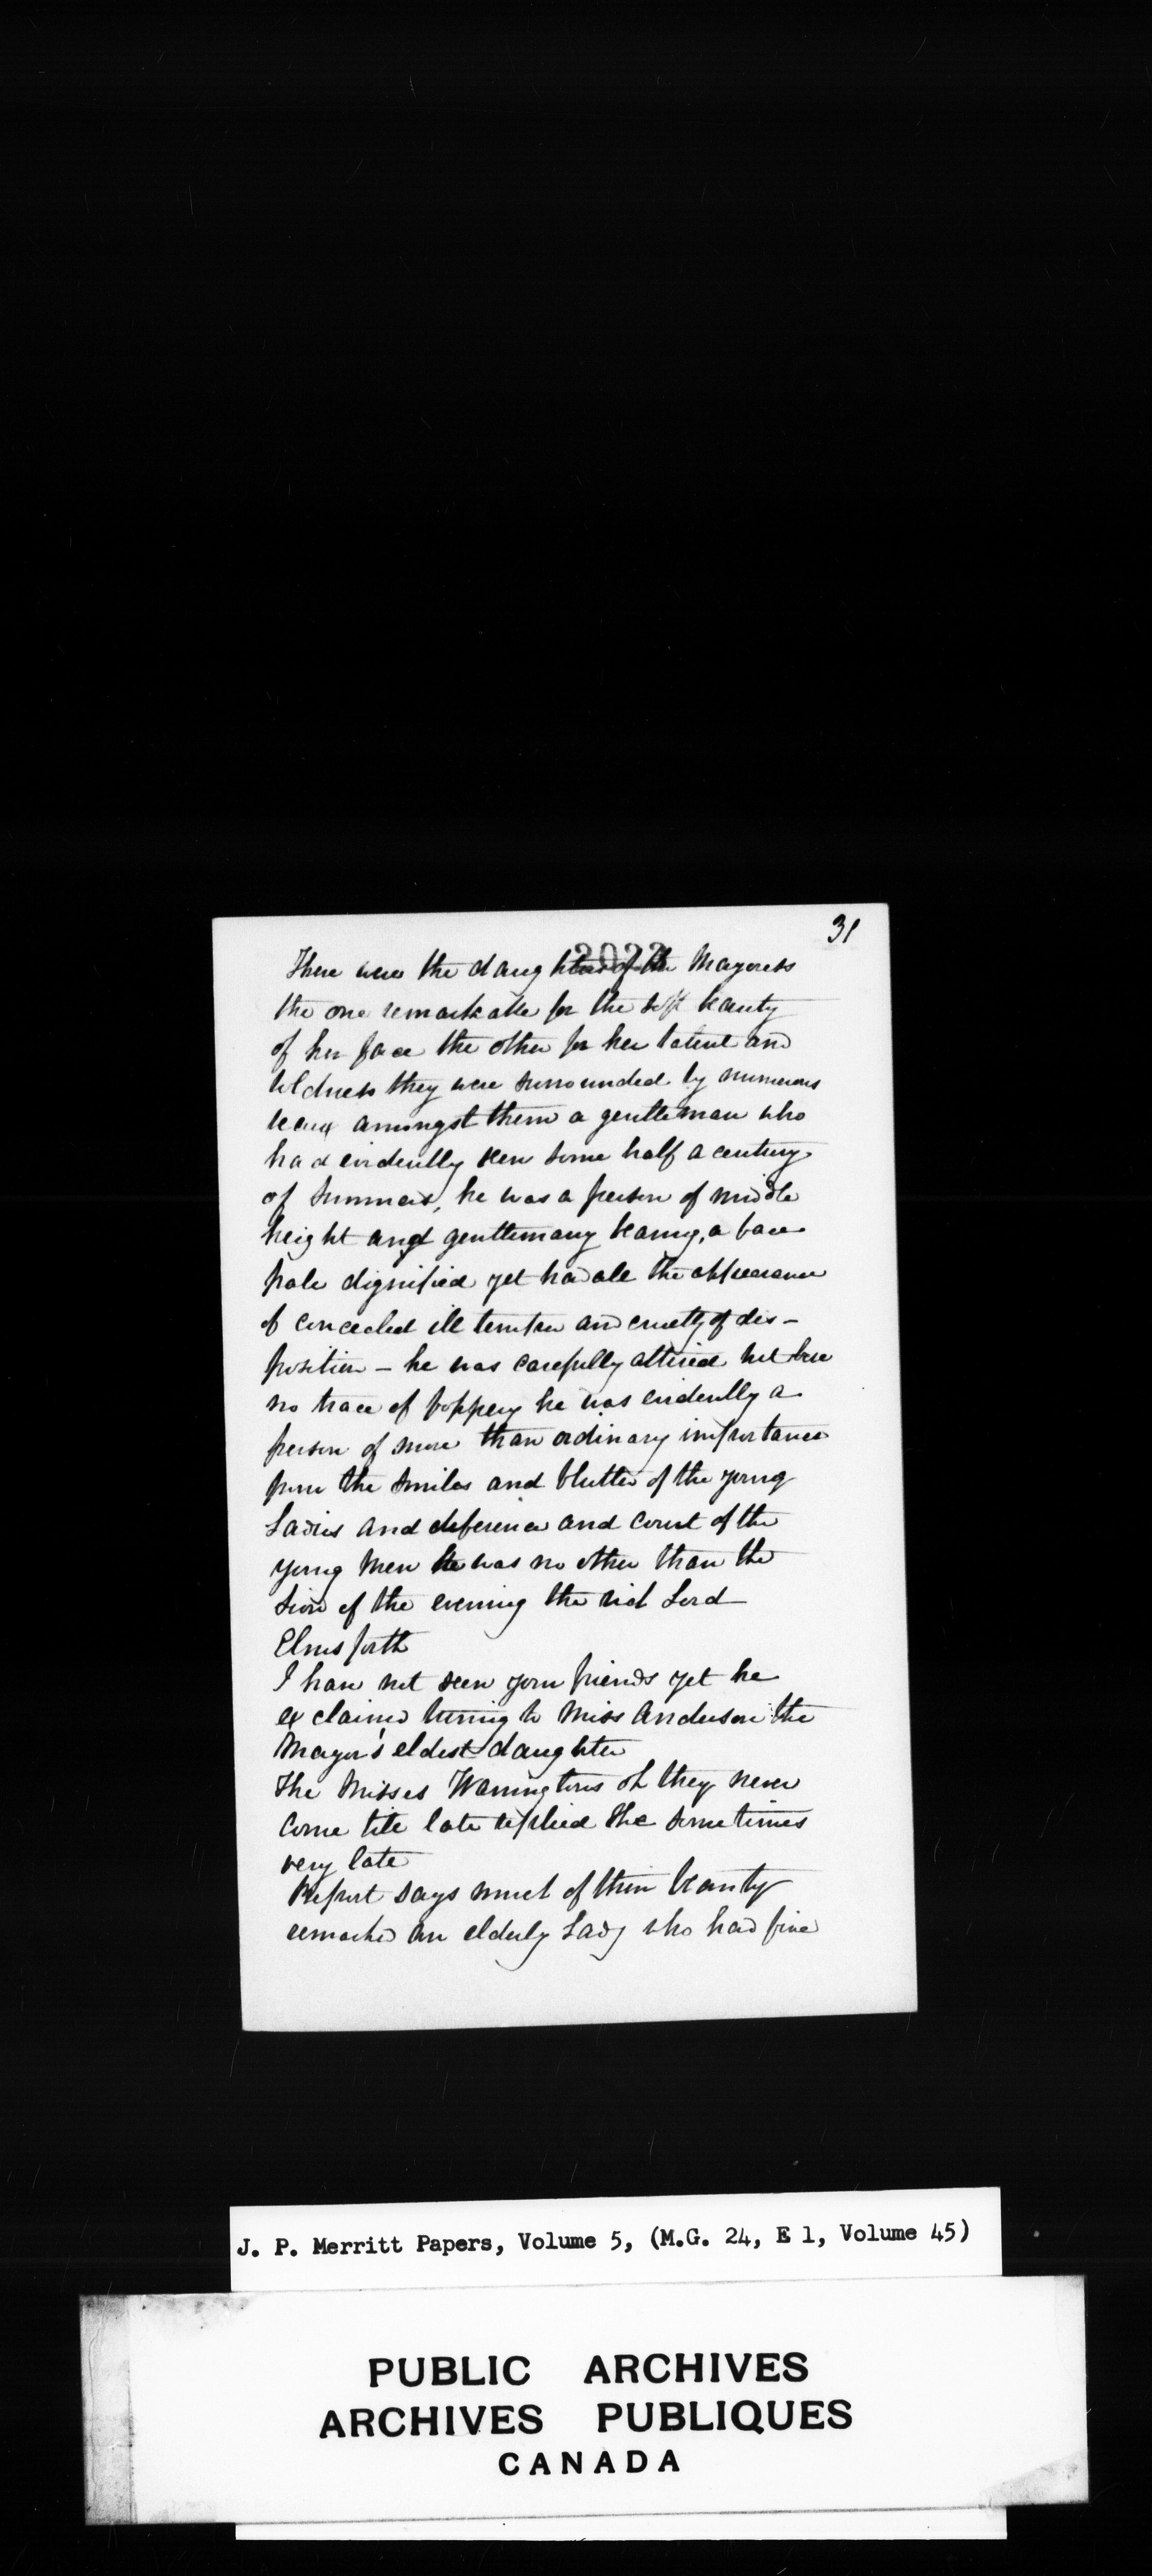 31
2023
There were the daughters of the Mayoress
the one remarkable for the soft beauty
of her face the other for her talent and
boldness they were surrounded by numerous
beaux amongst them a gentleman who
had evidently seen some half a century
of summers, he was a person of middle
height and gentlemany bearing, a face
pale dignified yet had all the appearance
of concealed ill temper and cruelty of dis-
position - he was carefully attired but bore
no trace of foppery he was evidently a
person of more than ordinary importance
from the smiles and flutter of the young
Ladies and deference and court of the
young men he was no other than the
Lion of the evening the rich Lord
Elmsforth
I have not seen your friends yet he
exclaimed turning to Miss Anderson the
Mayor's eldest daughter
The Misses Warringtons oh they never
come till late replied she sometimes
very late
Report says much of their beauty
remarked an elderly Lady who had five
J. P. Merritt Papers, Volume 5, (M.G. 24, E 1, Volume 45)
PUBLIC ARCHIVES
ARCHIVES PUBLIQUES
CANADA